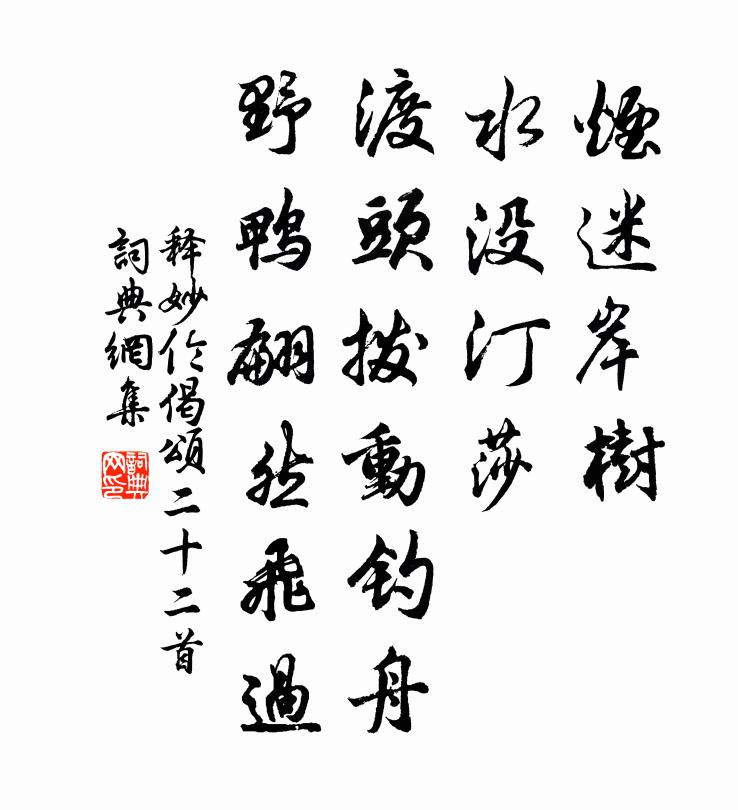 煙迷岸樹
水没汀莎
渡頭拨動钓舟
野鸭翩然飛過
释妙伦偈頌二十二首
詞典網集
詞典网印